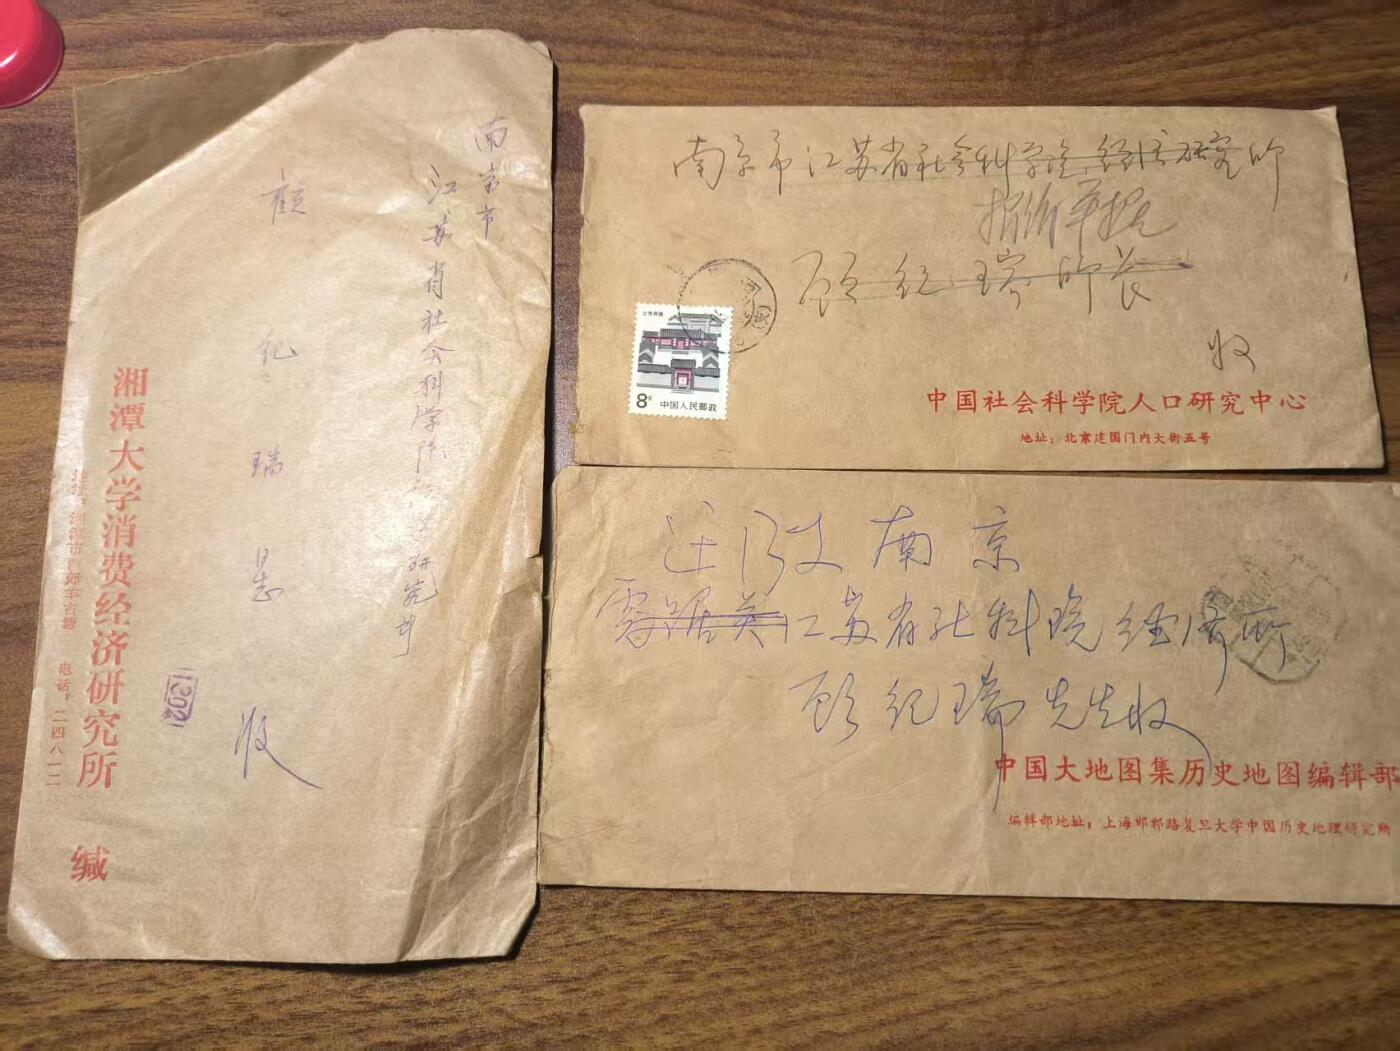 南京市
江苏省社会科学院经济研究所
顾纪瑞
收
湘潭大学消费经济研究所 缄
电话：二四八一二
1202
南京市江苏省社会科学院经济研究所
顾纪瑞所长
收
北京民居
8分 中国人民邮政
中国社会科学院人口研究中心
地址：北京建国门内大街五号
南京
江苏省社科院经济所
顾纪瑞先生收
中国大地图集历史地图编辑部
编辑部地址：上海邯郸路复旦大学中国历史地理研究所